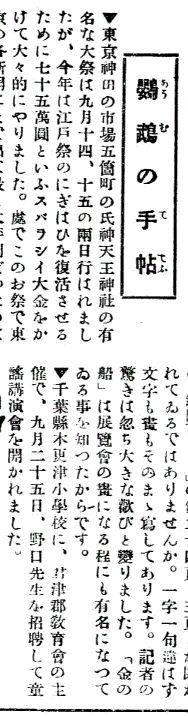 鸚鵡の手帖
あうむ
てふ
▼東京神田の市場五箇町の氏神天王神社の有
名な大祭は九月十四、十五の兩日行はれまし
たが、今年は江戸祭のにぎはひを復活させる
ために七十五萬圓といふスバラシイ大金をか
けて大々的にやりました。處でこのお祭で東
れてゐるではありませんか。一字一句違はず
文字も畫もそのまゝ寫してあります。記者の
驚きは忽ち大きな歡びと變りました。「金の
船」は展覽會の畫になる程にも有名になつて
ゐる事を知つたからです。
▼千葉縣木更津小學校に、君津郡敎育會の主
催で、九月二十五日、野口先生を招聘して童
謠講演會を開かれました。